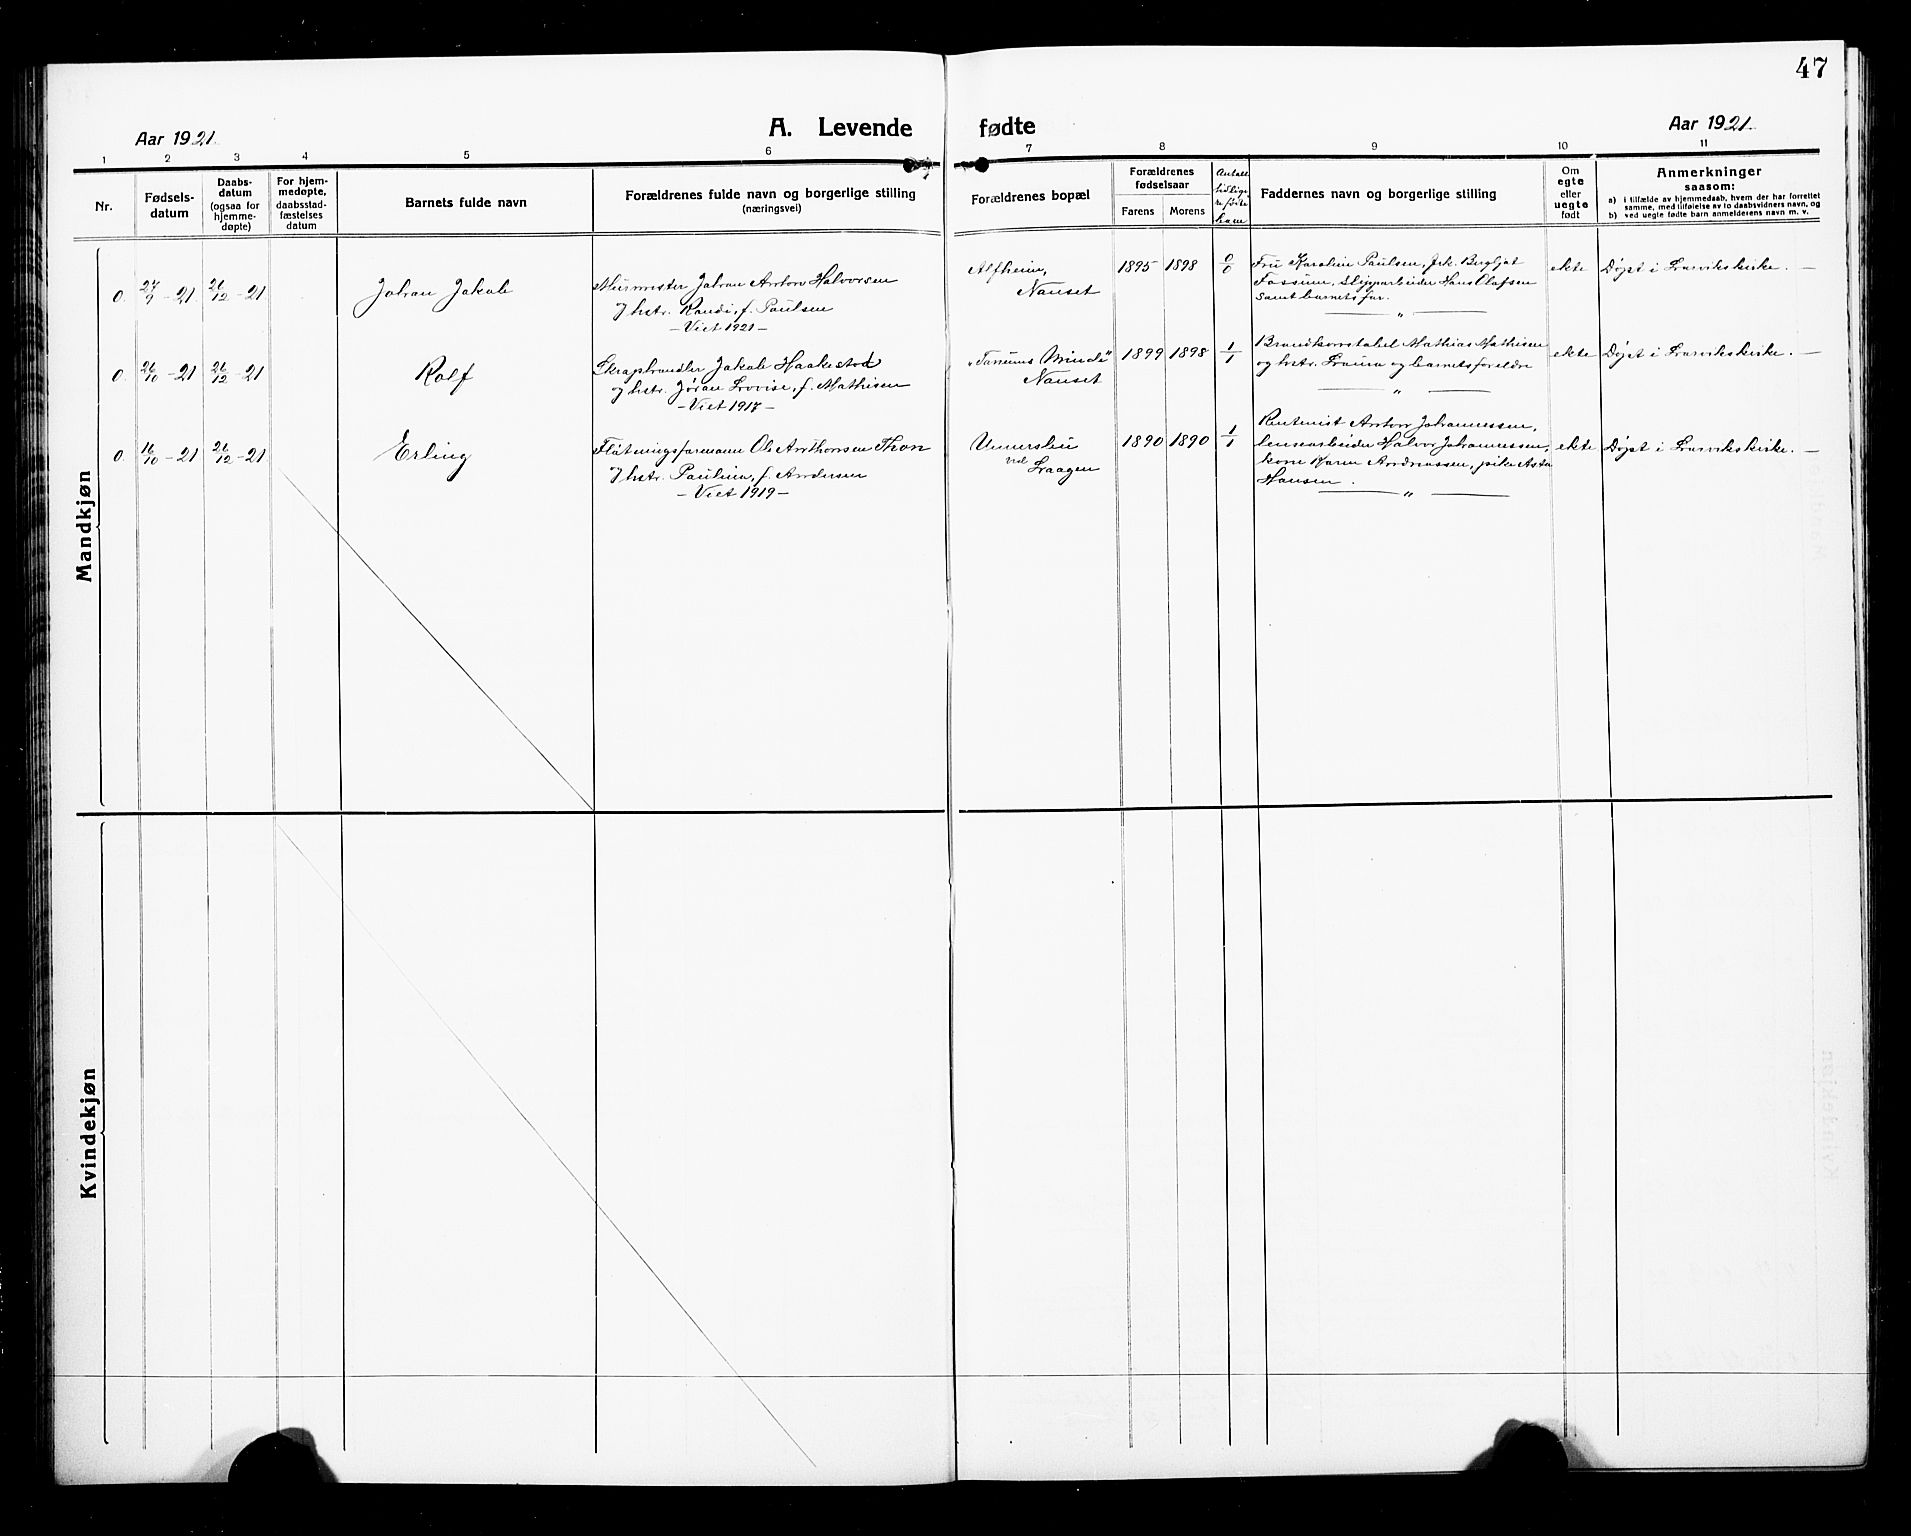 47
Aar 1921.
A. Levende fødte
Aar 1921.
1 2 3 4 5 6 7 8 9 10 11
Nr.
Fødsels-
datum
Daabs-
datum
(ogsaa for
hjemme-
døpte)
For hjem-
medøpte,
daabsstad-
fæstelses
datum
Barnets fulde navn
Forældrenes fulde navn og borgerlige stilling
(næringsvei)
Forældrenes bopæl
Forældrenes
fødselsaar
Farens Morens
Antall
tidlige-
re fødte
barn
Faddernes navn og borgerlige stilling
Om
egte
eller
uegte
født
Anmerkninger
saasom:
a) i tilfælde av hjemmedaab, hvem der har forrettet
samme, med tilføielse av to daabsvidners navn, og
b) ved uegte fødte barn anmelderens navn m. v.
Mandkjøn
0. 27/9 - 21. 26/12 - 21
Johan Jakob
Murmester Johan Anton Halvorsen
og hstr. Randi, f. Paulsen
- Viet 1921 -
Alfheim,
Nanset
1895 1898 0/0
Fru Karoline Paulsen, frk. Bergljot
Fossum, slipparbeider Hans Olafsen
samt barnets far.
— " —
ekte
Døpt i Larviks kirke. —
0. 26/10 - 21 26/12 - 21
Rolf
Skraphandler Jakob Haakestad
og hstr. Jøran Lovise, f. Mathisen
- Viet 1917 -
"Tanums Minde"
Nanset
1899 1898 1/1
Brandkonstabel Mathias Mathisen
og hstr. Laura og barnets foreldre
— " —
ekte
Døpt i Larviks kirke. —
0. 16/10 - 21 26/12 - 21
Erling
Fløtningsformann Ole Anthonsen Thon
og hstr. Pauline, f. Andersen
- Viet 1919 -
ved Laagen
1890 1890 1/1
Rentenist Anton Johannessen,
lensearbeider Halvor Johannessen,
kone Karen Andreassen, pike Asta
Hansen.
— " —
ekte
Døpt i Larviks kirke. —
Kvindekjøn